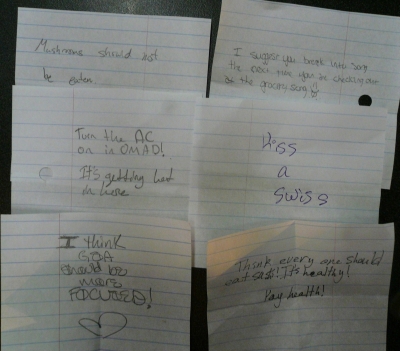 Mushrooms should not
be eaten.
I suggest you break into song
the next time you're checking out
at the grocery store
Turn the AC
on in OMAD!
It's getting hot
in here
Kiss
a
Swiss
I think
GSA
should be
more
FOCUSED!
Think every one should
eat subs! It's healthy!
Yay health!